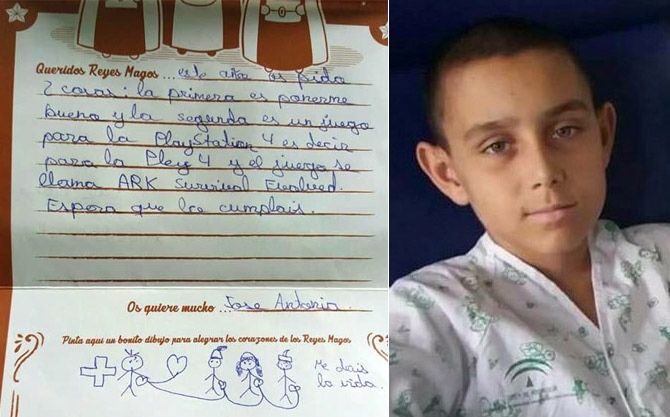 Queridos Reyes Magos ... este año os pido
2 cosas: la primera es ponerme
bueno y la segunda es un juego
para la PlayStation 4 es decir
para la Pley 4 y el juego se
llama ARK Survival Evolved.
Espero que los cumplais.
Os quiere mucho ... Jose Antonio
Pinta aquí un bonito dibujo para alegrar los corazones de los Reyes Magos
Me dais
la vida.